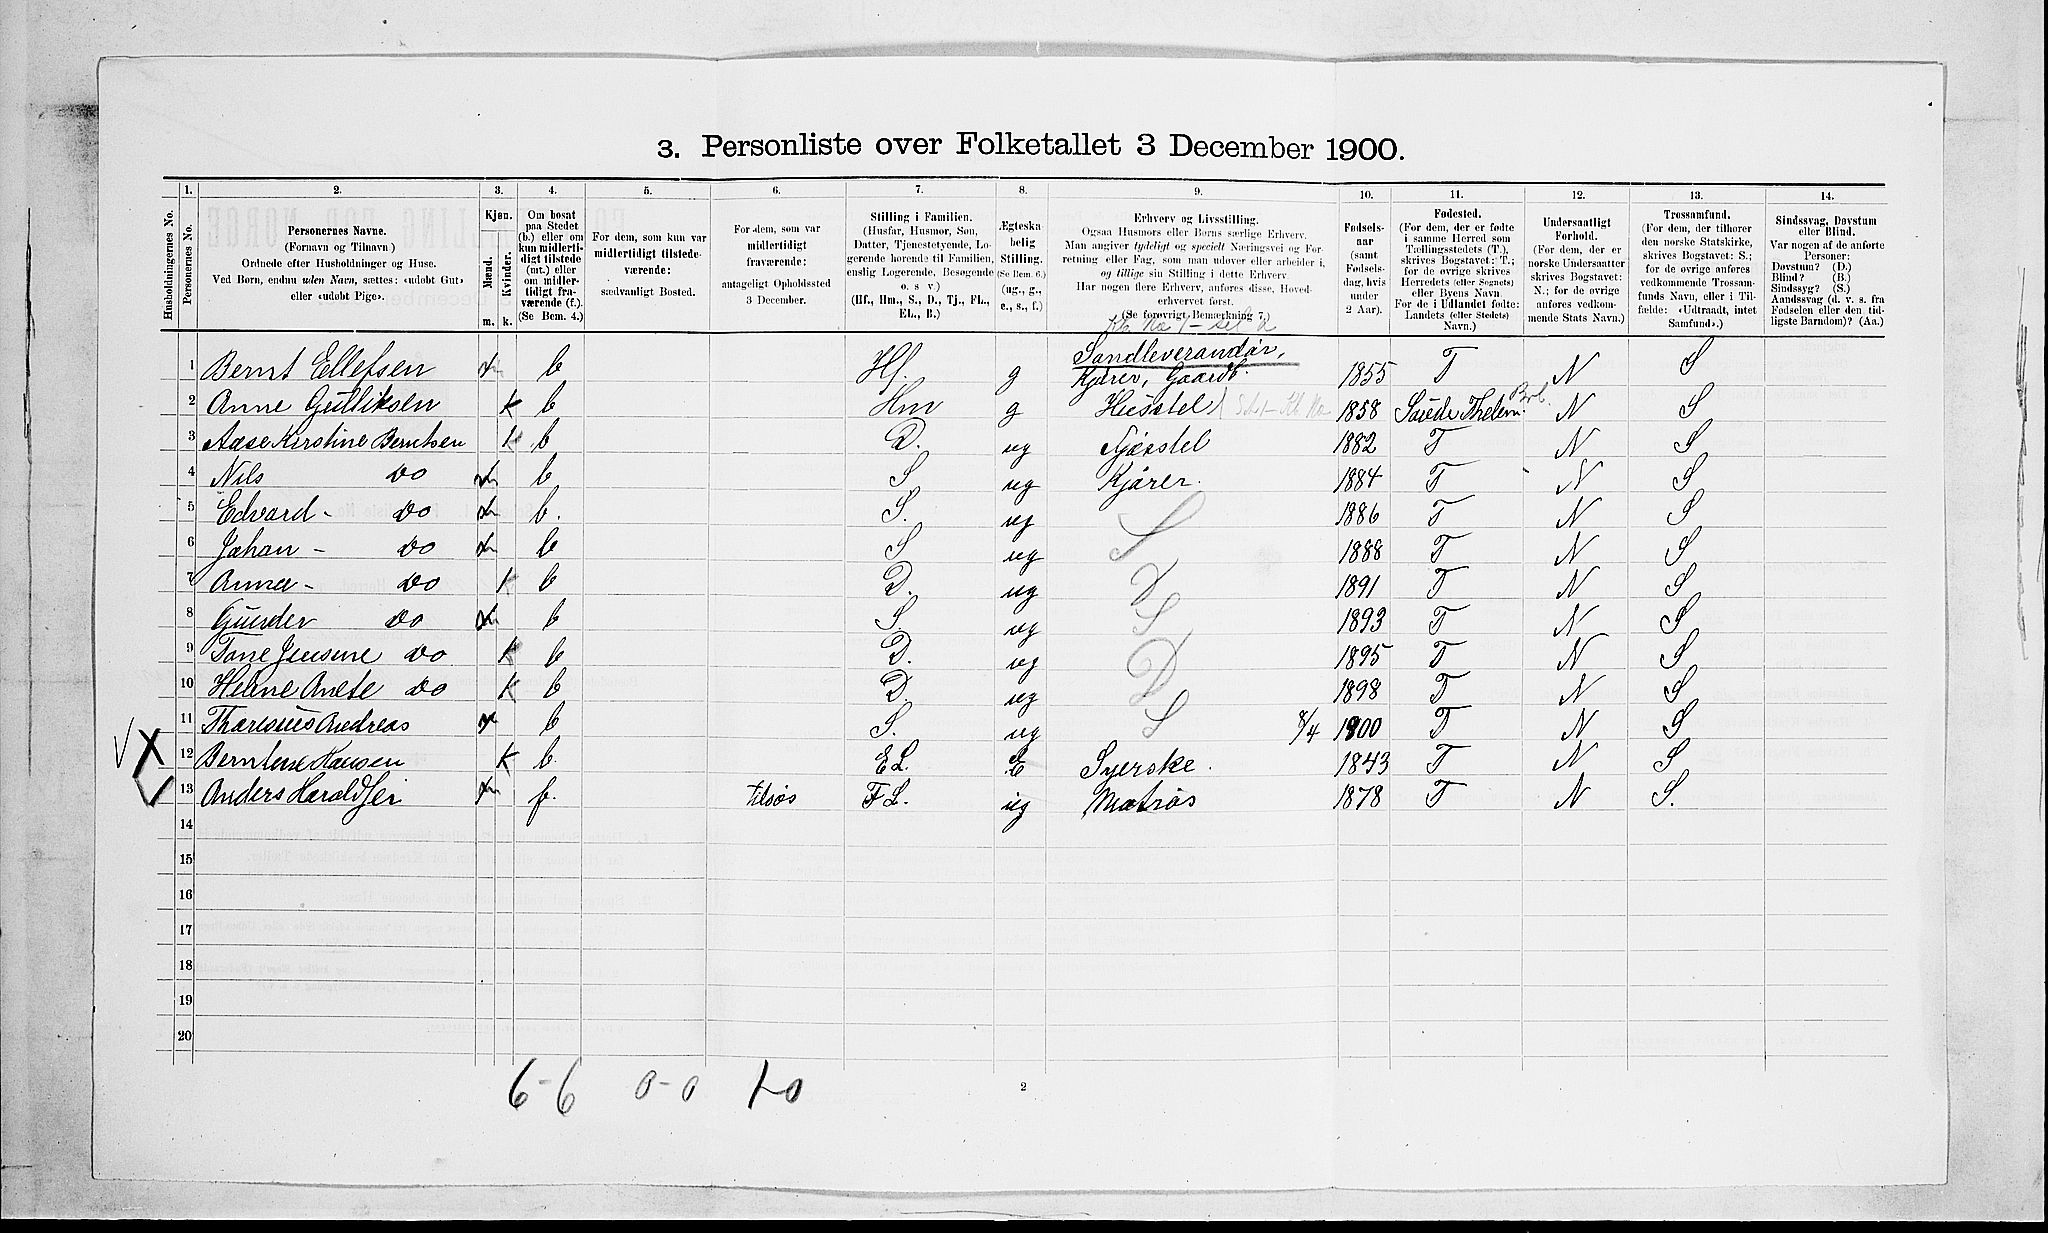 3. Personliste over Folketallet 3 December 1900.
1. 2. 3. 4. 5. 6. 7. 8. 9. 10. 11. 12. 13. 14.
Husholdningernes No.
Personernes No.
Personernes Navne.
(Fornavn og Tilnavn.)
Ordnede efter Husholdninger og Huse.
Ved Børn, endnu uden Navn, sættes: «udøbt Gut»
eller «udøbt Pige».
Kjøn.
Mænd.
Kvinder.
m. k.
Om bosat
paa Stedet
(b.) eller om
kun midlerti-
digt tilstede
(mt.) eller
om midler-
tidigt fra-
værende (f.).
(Se Bem. 4.)
For dem, som kun var
midlertidigt tilstede-
værende:
sædvanligt Bosted.
For dem, som var
midlertidigt
fraværende:
antageligt Opholdssted
3 December.
Stilling i Familien.
(Husfar, Husmor, Søn,
Datter, Tjenestetyende, Lo-
gerende hørende til Familien,
enslig Logerende, Besøgende
o. s. v.)
(Hf., Hm., S., D., Tj., FL.,
EL., B.)
Ægteska-
belig
Stilling.
(Se Bem. 6.)
(ug., g.,
e., s., f.)
Erhverv og Livsstilling.
Ogsaa Husmors eller Børns særlige Erhverv.
Man angiver tydeligt og specielt Næringsvei og For-
retning eller Fag, som man udøver eller arbeider i,
og tillige sin Stilling i dette Erhverv.
Har nogen flere Erhverv, anføres disse, Hoved-
erhvervet først.
(Se forøvrigt Bemærkning 7.)
Fødsels-
aar
(samt
Fødsels-
dag, hvis
under
2 Aar).
Fødested.
(For dem, der er fødte
i samme Herred som
Tællingsstedets (T.),
skrives Bogstavet: T.;
for de øvrige skrives
Herredets (eller Sognets)
eller Byens Navn
For de i Udlandet fødte:
Landets (eller Stedets)
Navn.)
Undersaatligt
Forhold.
(For dem, der er
norske Undersaatter
skrives Bogstavet:
N.; for de øvrige
anføres vedkom-
mende Stats Navn.)
Trossamfund.
(For dem, der tilhører
den norske Statskirke,
skrives Bogstavet: S.;
for de øvrige anføres
vedkommende Trossam-
funds Navn, eller i Til-
fælde: «Udtraadt, intet
Samfund».)
Sindssvag, Døvstum
eller Blind.
Var nogen af de anførte
Personer:
Døvstum? (D.)
Blind? (B.)
Sindssyg? (S.)
Aandssvag (d. v. s. fra
Fødselen eller den tid-
ligste Barndom)? (Aa.)
Sandleverandør,
1 Bernt Ellefsen m b Hf. g Kjører, Gaardb. 1855 T N S
2 Anne Gulliksen k b Hm g Husstel 1858 Saude Thelem. N S
3 Aase Kirstine Berntsen k b D. ug Fjøsstel 1882 T N S
4 Nils Do m b S ug Kjører. 1884 T N S
5 Edvard - Do m b. S. ug S 1886 T N S
6 Johan - Do m b S ug 1888 T N S
7 Anna - Do k b D. ug D 1891 T N S
8 Gunder Do m b S. ug S 1893 T N S
9 Tone Jensine Do k b D. ug D 1895 T N S
10 Helene Anete Do k b D. ug 1898 T N S
11 Thoresius Andreas m b S. ug S 8/4 1900 T N S
12 Berntine Hansen k b. EL. E Syerske. 1843 T N S
13 Anders Haraldsei m f. tilsøs FL. ug Matros 1878 T N S.
14
15
16
17
18
19
20
6-6 0-0 1-0
2